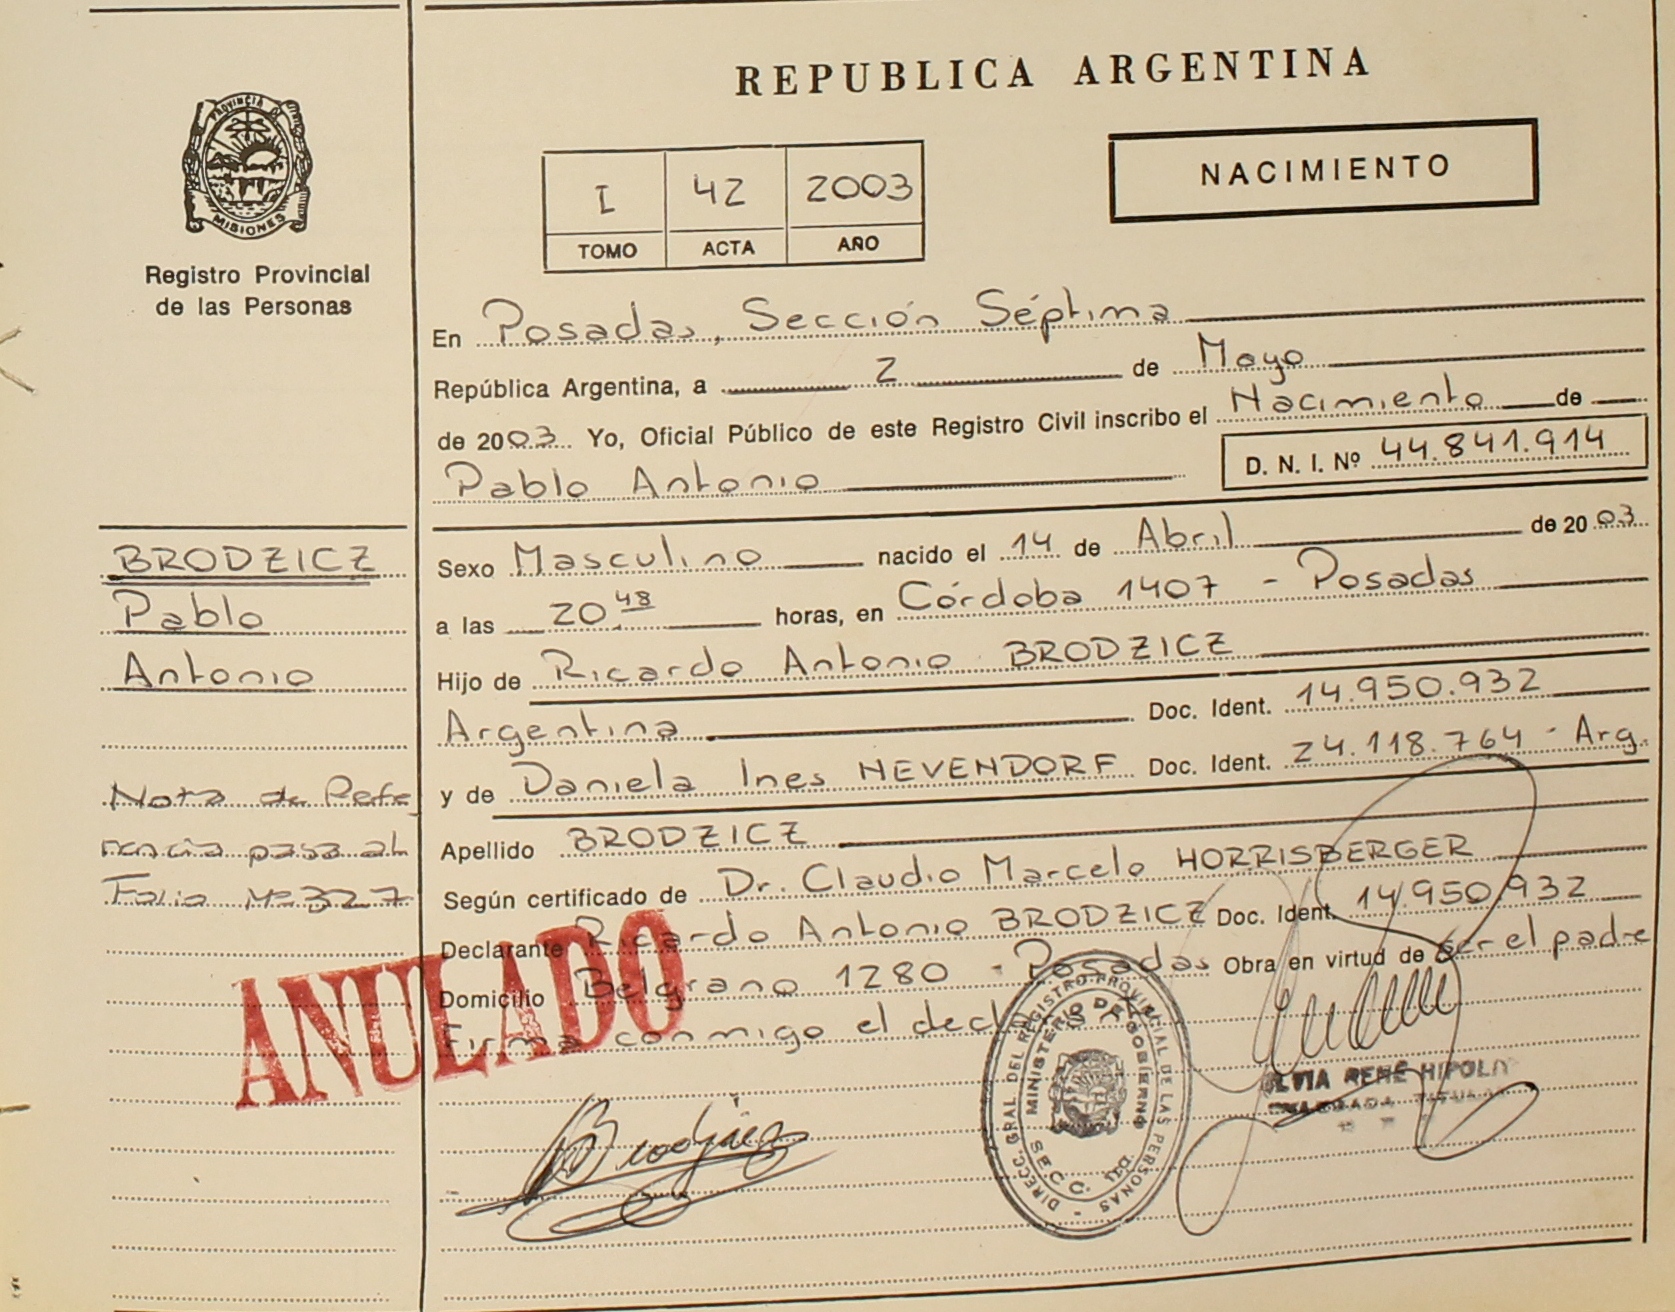 REPUBLICA ARGENTINA
PROVINCIA
MISIONES
Registro Provincial
de las Personas
I 42 2003
TOMO ACTA AÑO
NACIMIENTO
En Posadas, Sección Séptima
República Argentina, a 2 de Mayo
de 2003 Yo, Oficial Público de este Registro Civil inscribo el Nacimiento de
Pablo Antonio D. N. I. Nº 44.841.914
BRODZICZ
Pablo
Antonio
Sexo Masculino nacido el 14 de Abril de 2003
a las 20 48 horas, en Córdoba 1407 - Posadas
Hijo de Ricardo Antonio BRODZICZ
Argentina Doc. Ident. 14.950.932
y de Daniela Ines NEVENDORF Doc. Ident. 24.118.764 - Arg.
Apellido BRODZICZ
Según certificado de Dr. Claudio Marcelo HORRISBERGER
Declarante Ricardo Antonio BRODZICZ Doc. Ident. 14.950.932
Domicilio Belgrano 1280 - Posadas Obra en virtud de ser el padre
Firma conmigo el
Nota de Refe
rencia pasa al
Folio Nº 327
ANULADO
DIRECC. GRAL. DEL REGISTRO PROVINCIAL DE LAS PERSONAS
MINISTERIO DE GOBIERNO
SECC. 7ma.
RENÉ HIPOLIT
TITULAR